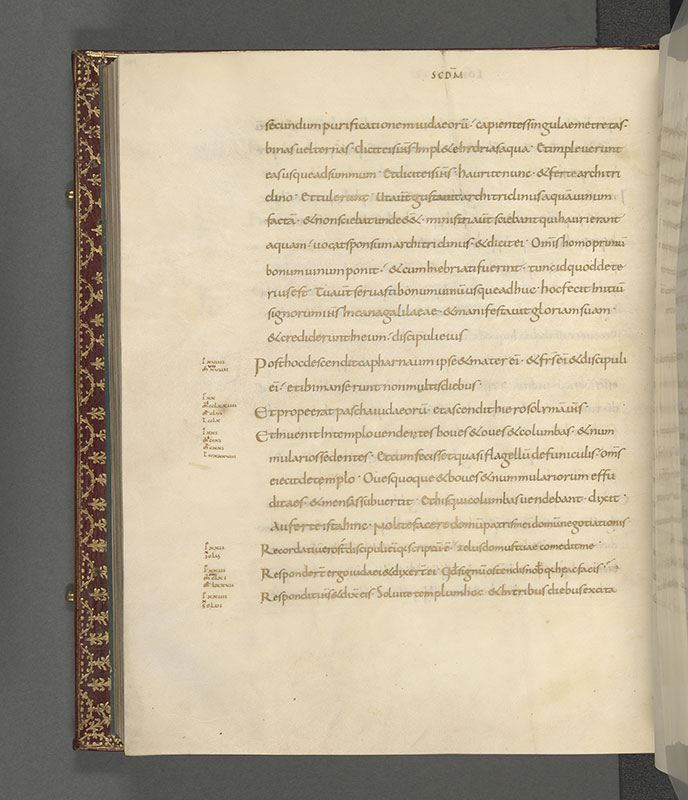 SCDM̄
secundum purificationem iudaeorū· capientes singulae metretas·
binas uel ternas· dicit eis ih̄s Implete hydrias aqua· Et impleuerunt
eas usque ad summum· Et dicit eis ih̄s· haurite nunc· & ferte architri
clino· Et tulerunt· Ut aūt gustauit architriclinus aquā uinum
factā· & non sciebat unde e&· ministri aūt sciebant qui haurierant
aquam· uocat sponsum architriclinus· & dicit ei· Om̄s homo primū
bonum uinum ponit· & cum Inebriati fuerint· tunc id quod dete
rius est· Tu aūt seruasti bonum uinū usque adhuc· hoc fecit Initiū
signorum ih̄s In cana galilaeae· & manifestauit gloriam suam·
& crediderunt In eum· discipuli eius
Post hoc descendit capharnaum ipse & mater ei· & fr̄s ei & discipuli
ei· et ibi manserunt non multis diebus·
Et prope erat pascha iudaeorū· et ascendit hierosolymā ih̄s·
Et Inuenit In templo uendentes boues & oues & columbas· & num
mularios sedentes· Et cum fecisset quasi flagellū de funiculis· om̄s
eiecit de templo· Oues quoque & boues & nummulariorum effu
dit aes· & mensas subuertit· Et his qui columbas uendebant· dixit·
Auferte ista hinc· Nolite facere domū patris mei domū negotiationis
Recordati uero st̄ discipuli ei q̄ scriptū ē· zelus domus tuae comedit me·
Respondert̄ ergo iudaei & dixert̄ ei· Qd̄ signū ostendis nob̄ q̄ haec facis·
Respondit ih̄s & dix̄ eis· Soluite templum hoc· & In tribus diebus excita